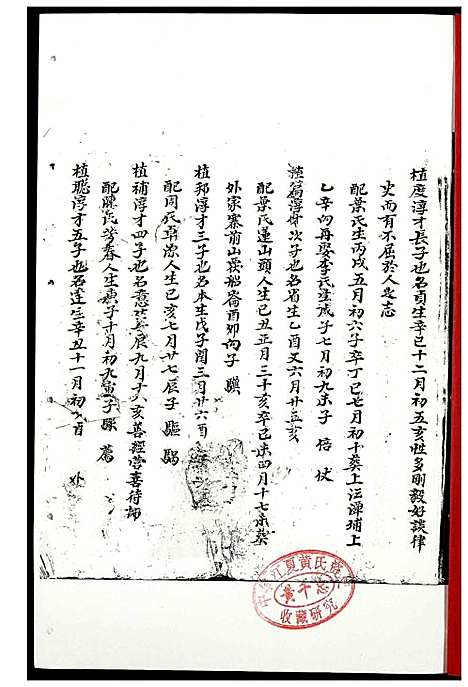 植度淳才長子也名貢生辛巳十二月初五亥性多剛毅好談律
史而有不屈於人之志
配葉氏生丙戌五月初六子辛丁巳七月初十葬上坛潭埔上
乙辛向再娶李氏生戊子七月初九未子 倍 伏
植篇淳才次子也名省生乙酉又六月廿五亥
配吳氏蓮山頭人生己丑正月三十亥辛己未四月十七未葬
外家寨前山 船崙酉卯向子 驥
植邦淳才三子也名本生戊子閏三月廿六酉
配周氏 人生己亥七月廿七辰子 驅
植補淳才四子也名意 辰九月十六亥善經營喜待
配陳氏芳春人生庚子十月初九
植聰淳才五子也名逢 辛丑十一月初 酉
江夏黃氏
黃千
收藏研究